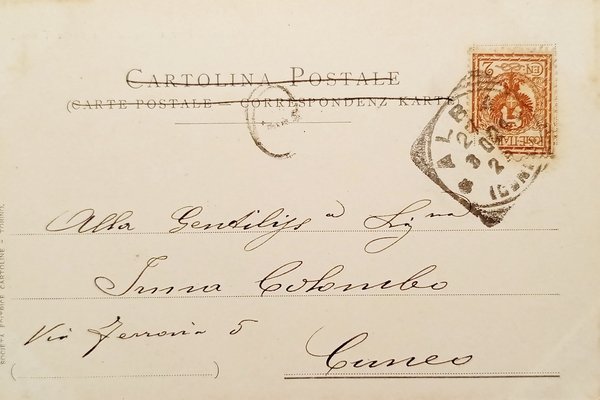 CARTOLINA POSTALE
(CARTE POSTALE - CORRESPONDENZ KARTE
CEN 2
POSTE ITALIANE
ALBA
(CUNEO)
Alla Gentiliss.a Sig.na
Irma Colombo
Via Ferraris 5
Cuneo
SOCIETÀ EDITRICE CARTOLINE - TORINO